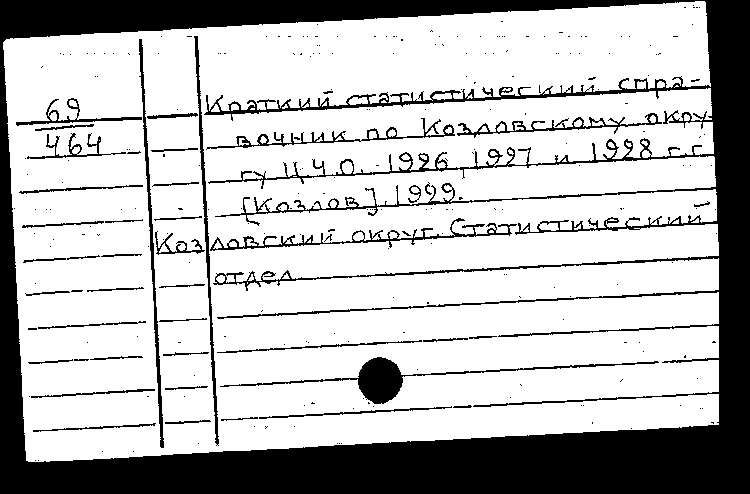 69
464
Краткий статистический спра-
вочник по Козловскому окру-
гу Ц.Ч.О. 1926, 1927 и 1928 г.г.
[Козлов]. 1929.
Козловский округ. Статистический
отдел